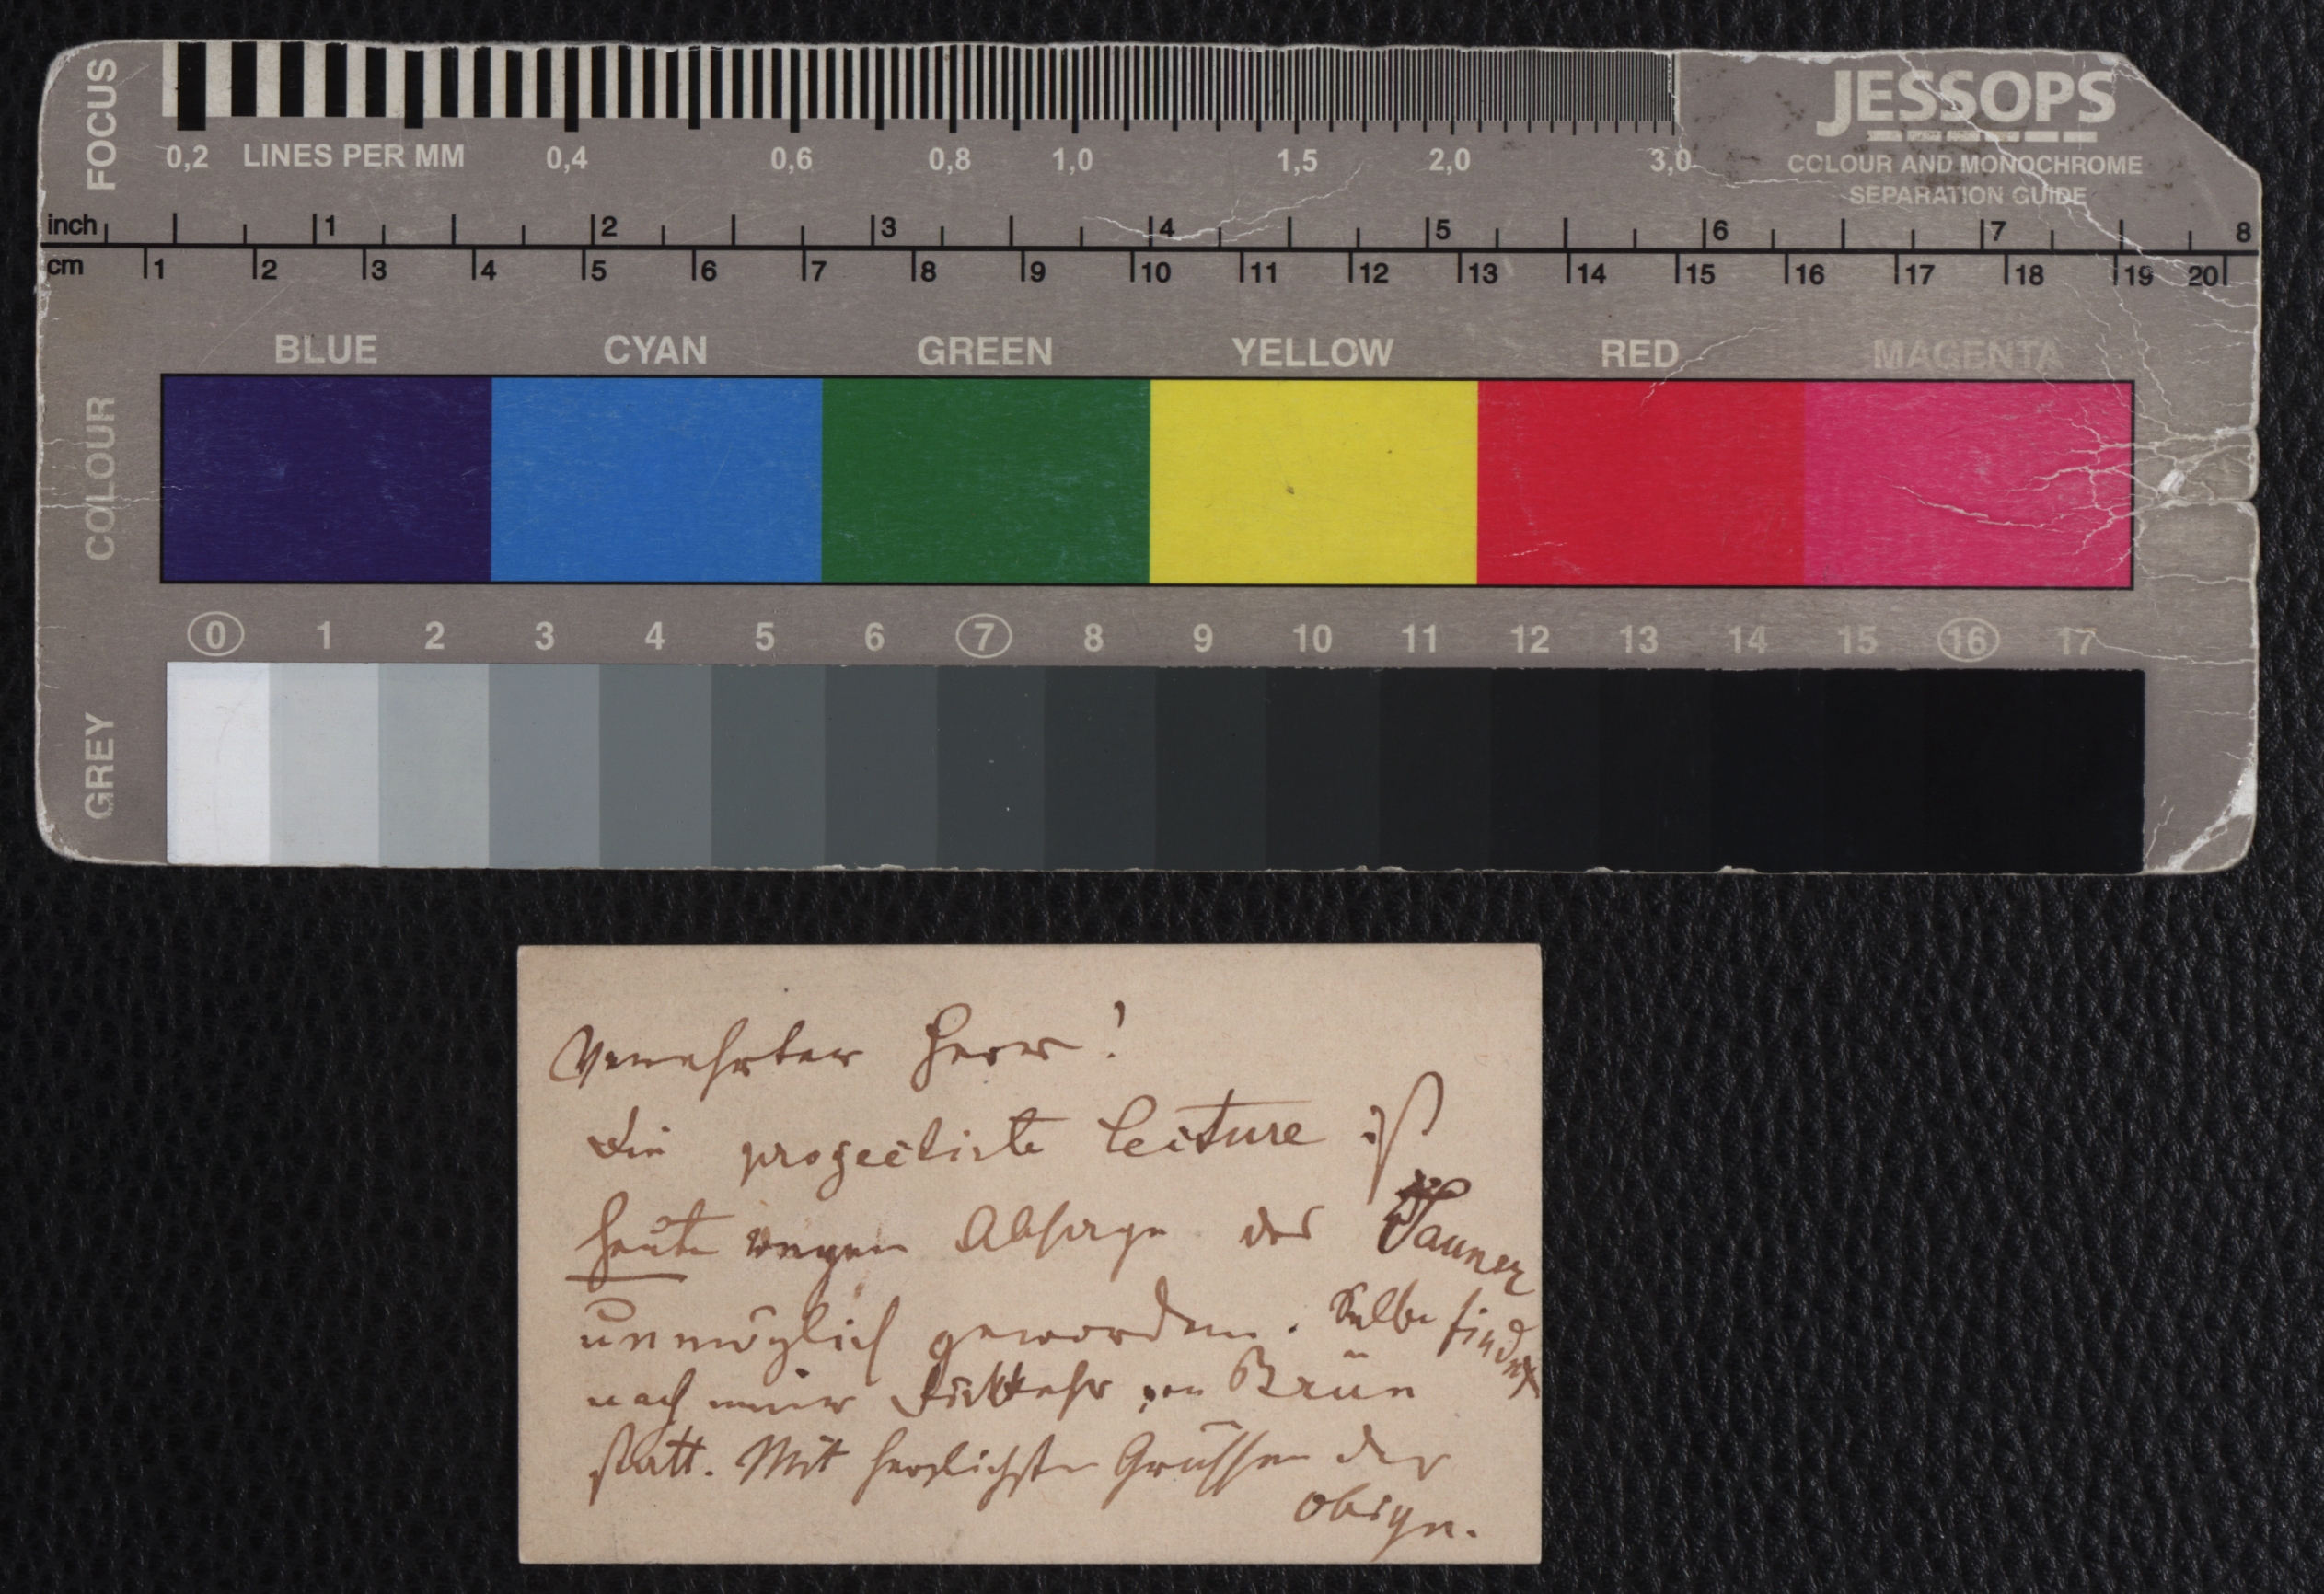 FOCUS
0,2 LINES PER MM 0,4 0,6 0,8 1,0 1,5 2,0 3,0
JESSOPS
COLOUR AND MONOCHROME
SEPARATION GUIDE
inch 1 2 3 4 5 6 7 8
cm 1 2 3 4 5 6 7 8 9 10 11 12 13 14 15 16 17 18 19 20
COLOUR
BLUE CYAN GREEN YELLOW RED MAGENTA
0 1 2 3 4 5 6 7 8 9 10 11 12 13 14 15 16 17
GREY
Verehrter Herr!
Die projectirte Lecture ist
heute wegen Absage der
unmöglich geworden. Selbe findet
nach meiner Rückkehr von Brün̄
statt. Mit herzlichsten Grüssen der
obige.